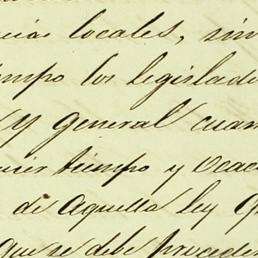 cias locales, sin
tiempo los legislado
y general cuan
uier tiempo y ocac
de aquella ley q
que se debe proceder